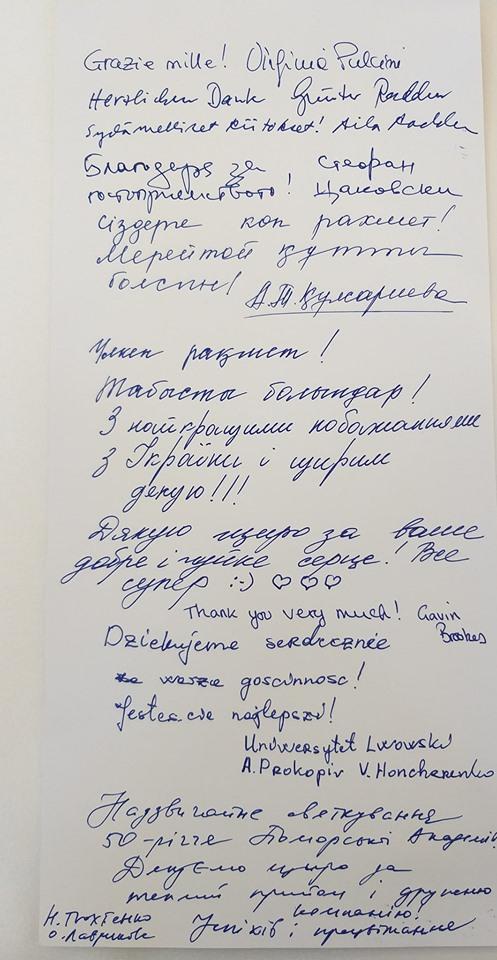 Grazie mille! Virginia Pulcini
Herzlichen Dank Günter Radden
Sydämelliset kiitokset! Aila Radden
Благодаря за Стефан
гостоприемството! Цаковски
Сіздерге коп рахмет!
Мерейтой құтты
болсын!
А.Т. Кулсариева
Улкен рақмет!
Табысты болыңдар!
З найкращими побажаннями
з України і щирим
дякую!!!
Дякую щиро за ваше
добре і чуйке серце! Все
супер :-) ♡♡♡
Thank you very much! Gavin
Brookes
Dziękujemy serdecznie
za wasze gościnność!
Jesteście najlepsi!
Uniwersytet Lwowski
A. Prokopiv V. Honcharenko
Надзвичайне святкування
50-річчя Поморської Академії!
Дякуємо щиро за
теплий прийом і дружню
компанію!
Успіхів і процвітання
О. Лавриков